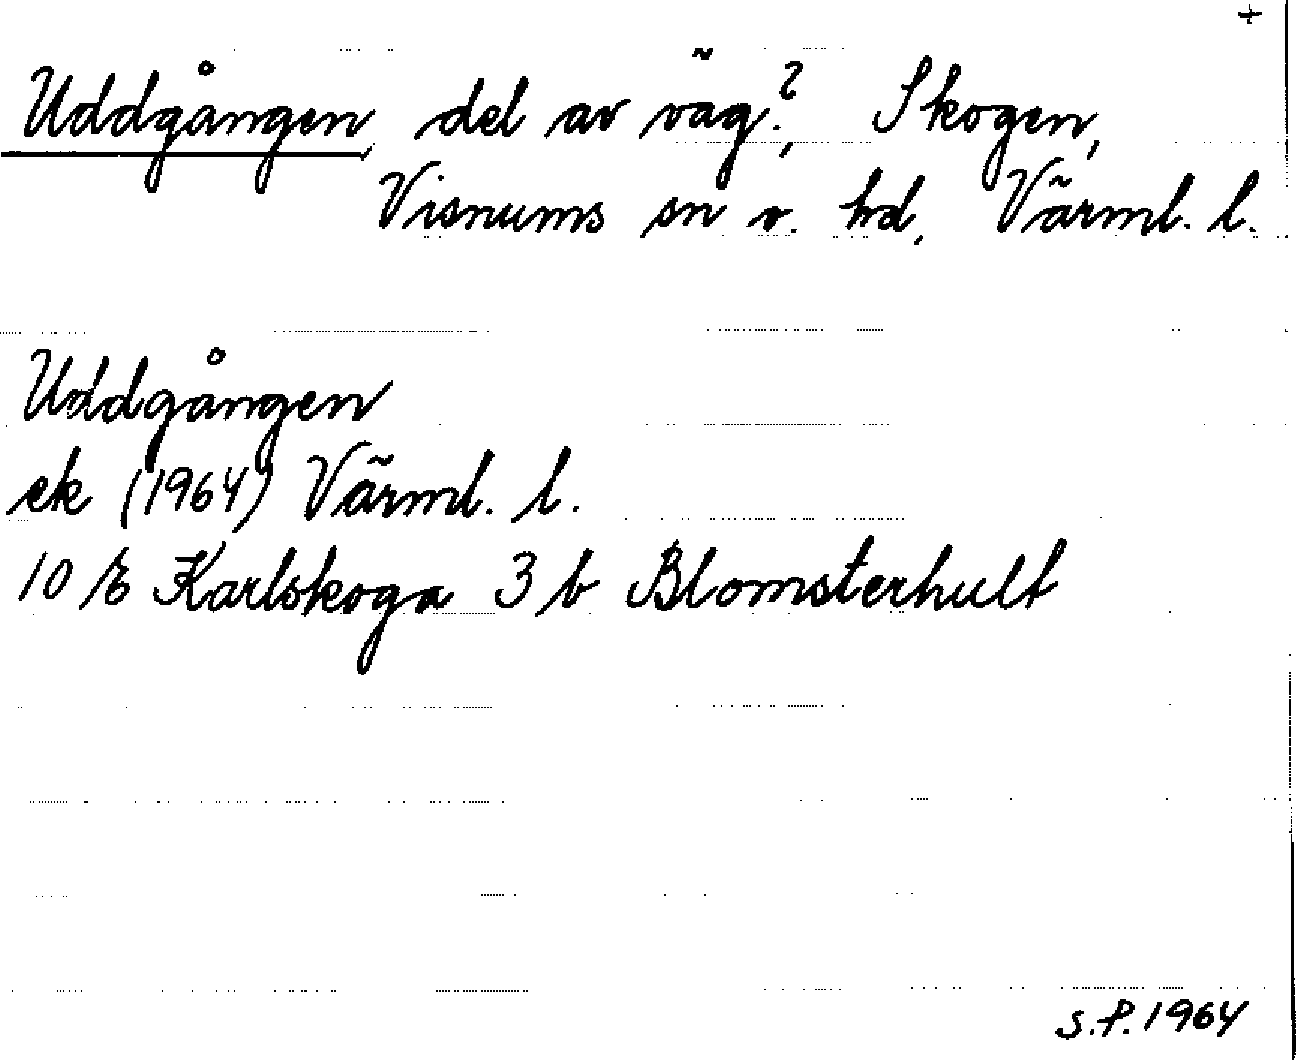 +
Uddgången del av väg?, Skogen,
Visnums sn o. hd, Värml. l.
Uddgången
ek (1964) Värml. l.
10 E Karlskoga 3 b Blomsterhult
S.P. 1964